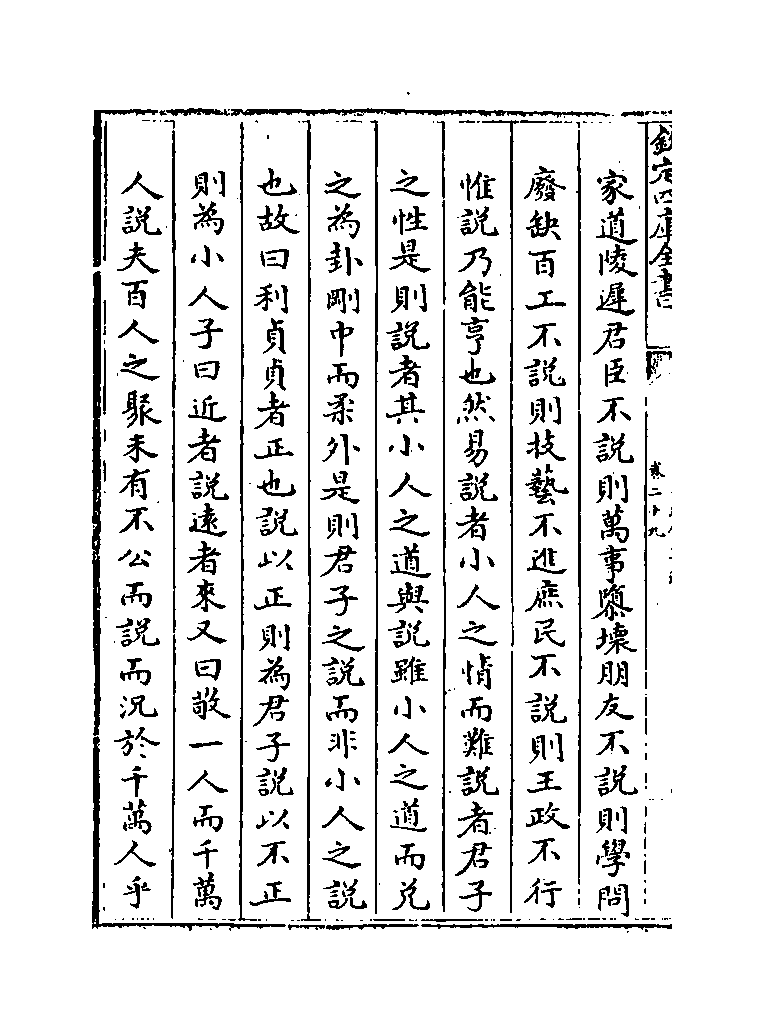 欽定四庫全書
卷二十九
家道陵遲君臣不説則萬事隳壊朋友不説則學問
廢缺百工不説則技藝不進庶民不説則王政不行
惟説乃能亨也然易説者小人之情而難説者君子
之性是則説者其小人之道與説雖小人之道而兑
之為卦剛中而柔外是則君子之説而非小人之説
也故曰利貞貞者正也説以正則為君子説以不正
則為小人子曰近者説逺者來又曰敬一人而千萬
人説夫百人之聚未有不公而説而况於千萬人乎